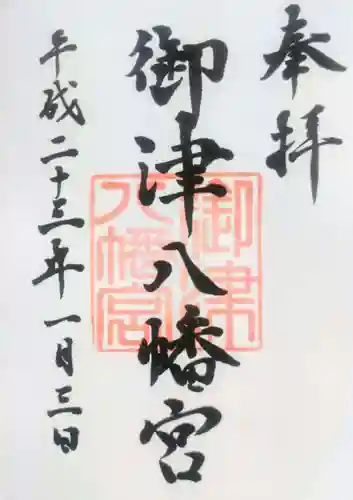 奉拝
御津八幡宮
平成二十三年一月三日
御津
八幡宮